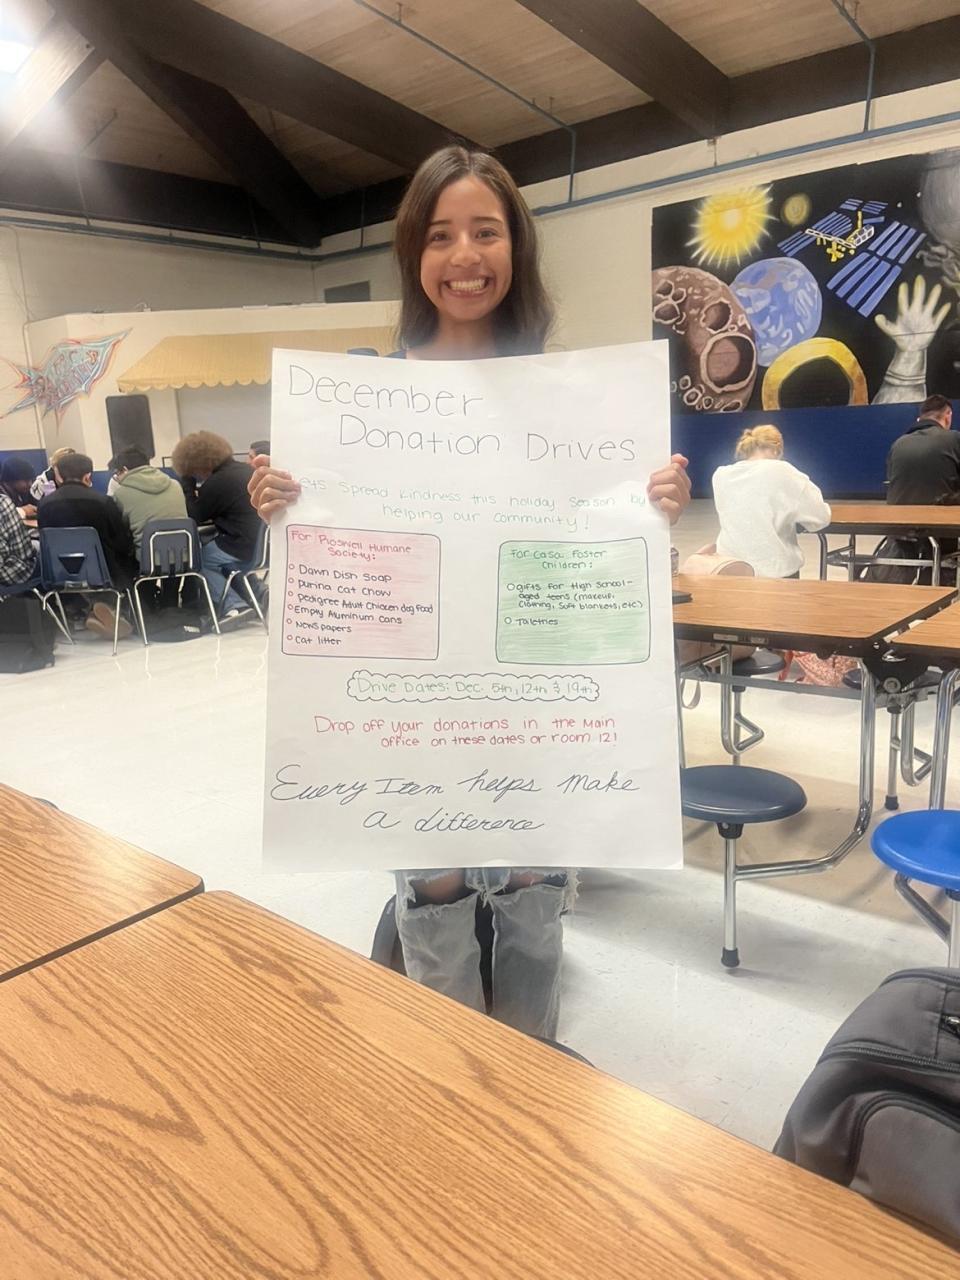 December
Donation Drives
Lets spread kindness this holiday season by
helping our community!
For Roswell Humane
Society:
Dawn Dish Soap
Purina Cat Chow
Pedigree Adult Chicken dog food
Empty Aluminum Cans
Newspapers
Cat litter
For Casa Foster
Children:
gifts for High School-
aged teens (makeup,
clothing, soft blankets, etc)
Toiletries
Drive Dates: Dec. 5th, 12th & 19th
Drop off your donations in the Main
office on these dates or room 12!
Every Item helps Make
a difference